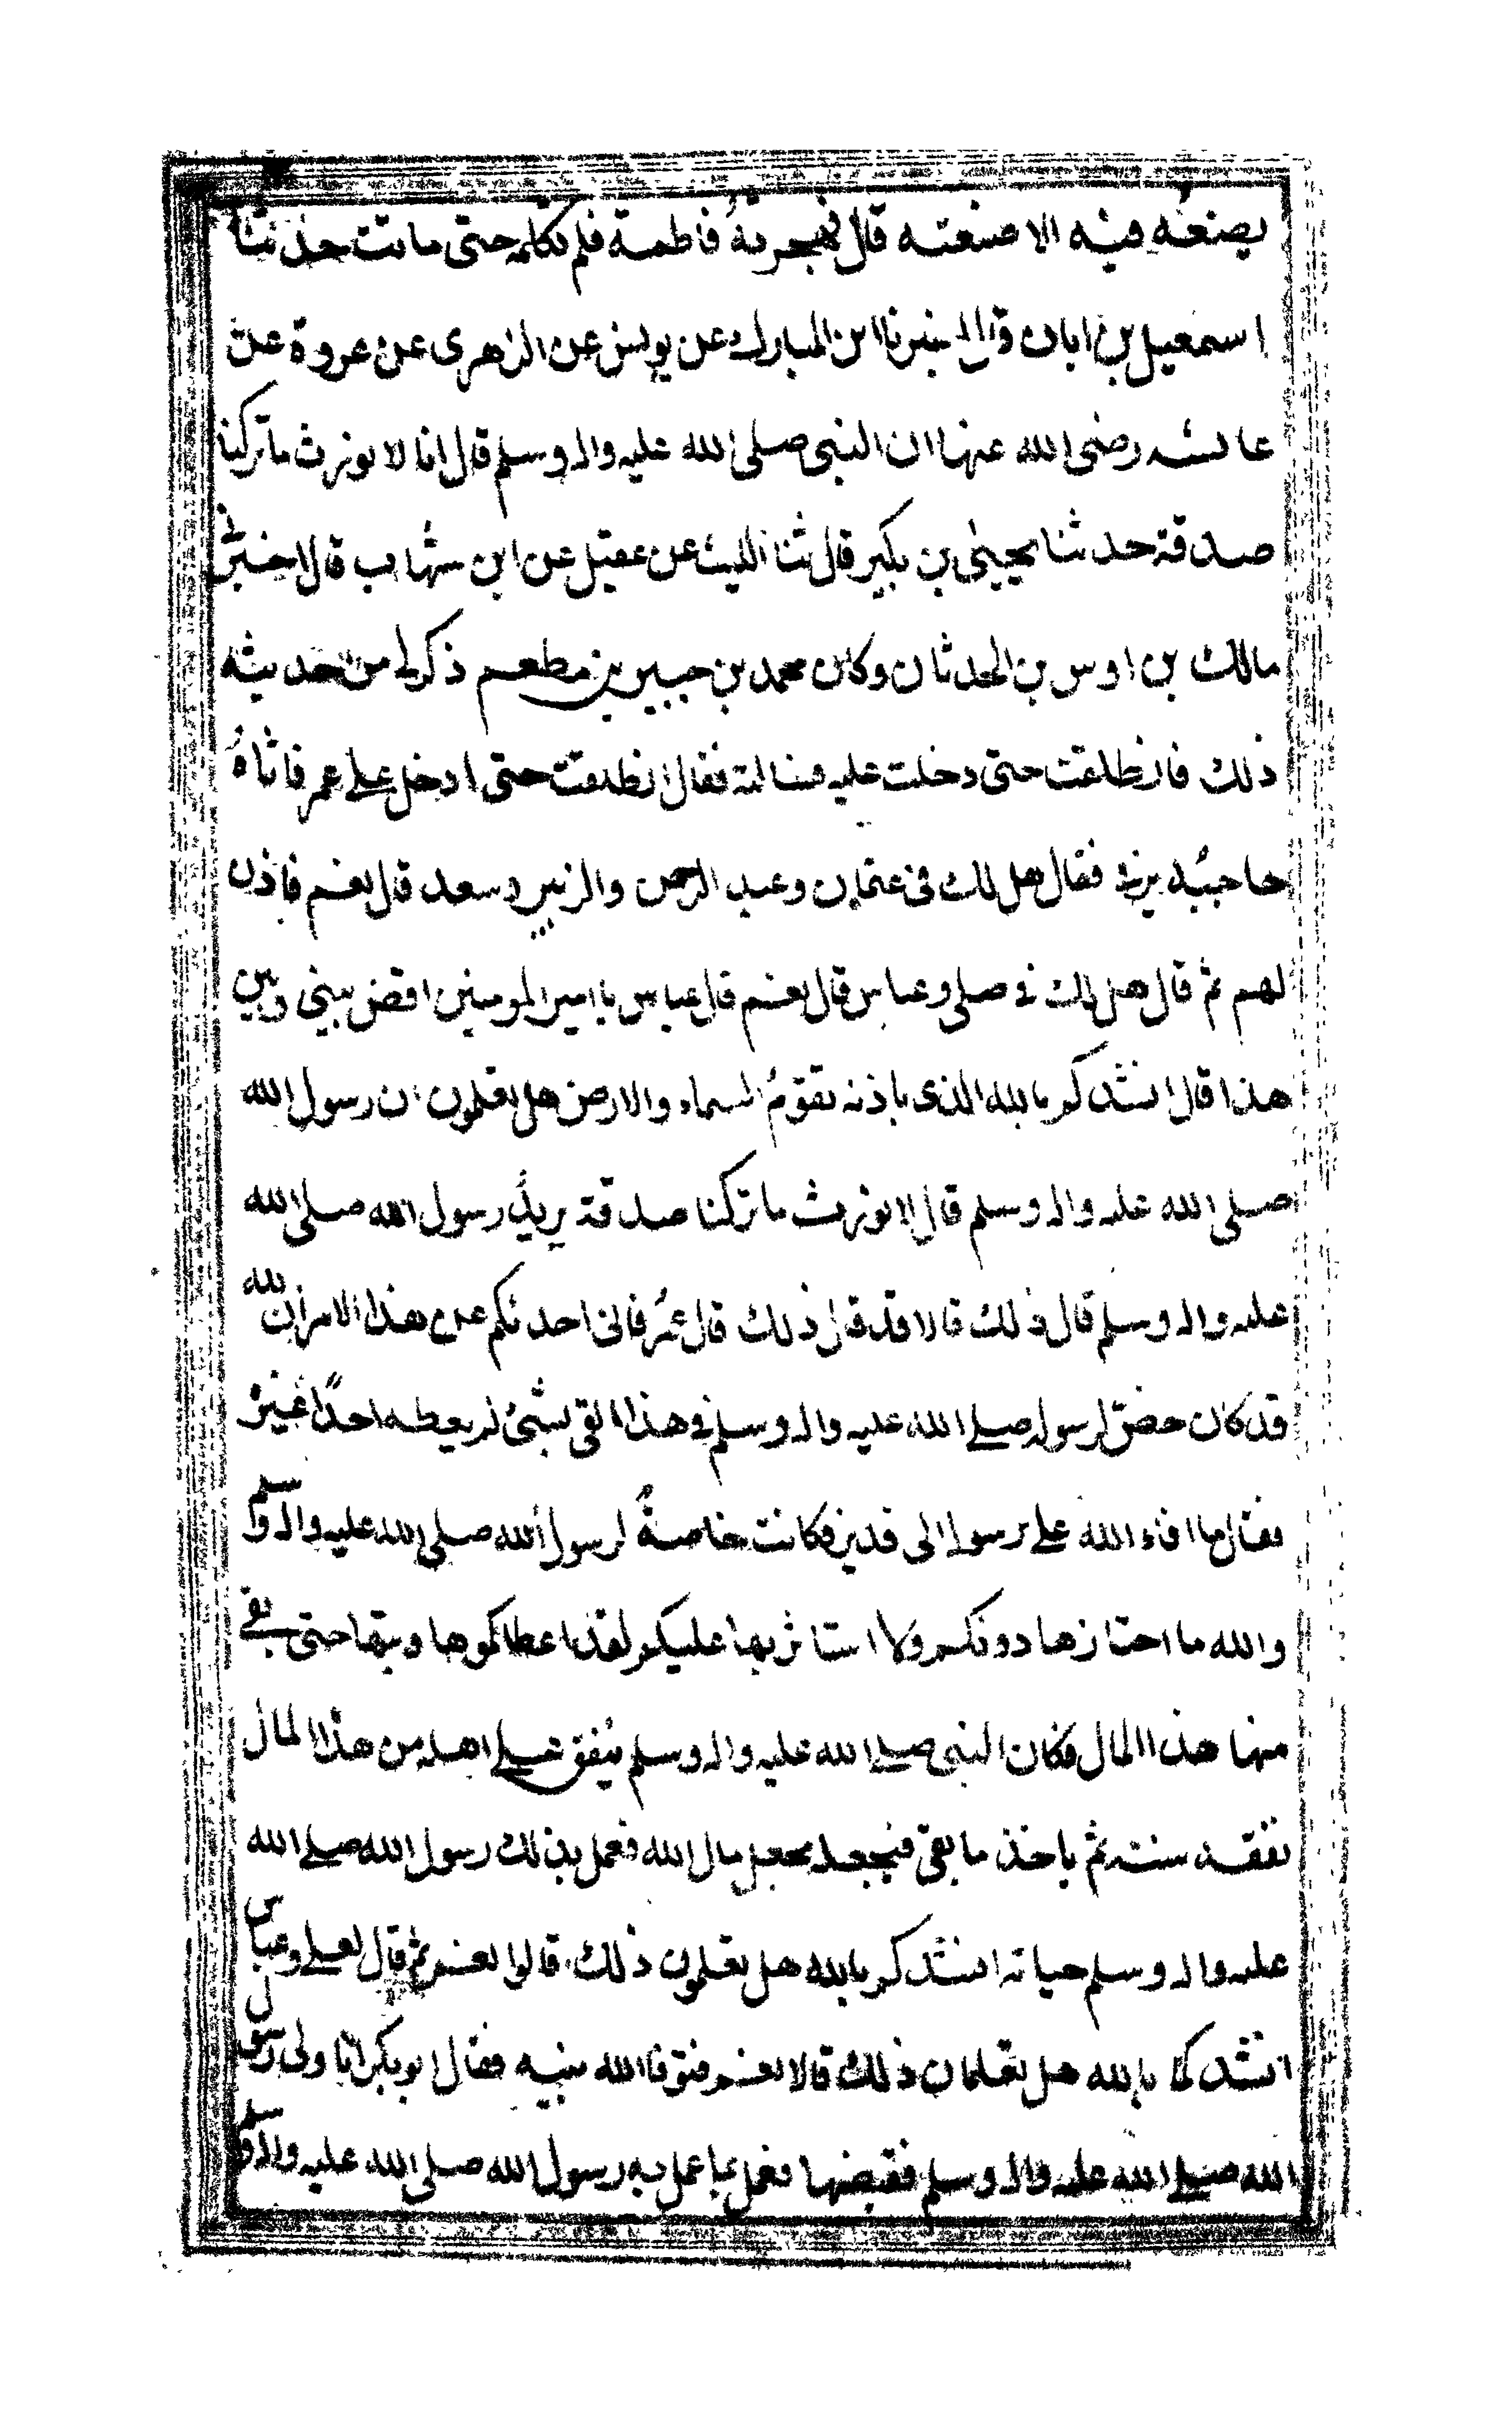 يصنعه فيه الا صنعته قال فهجرته فاطمة فلم تكلمه حتى ماتت حدثنا
اسمعيل بن ابان قال اخبرنا ابن المبارك عن يونس عن الزهرى عن عروة عن
عائشه رضى الله عنها ان النبى صلى الله عليه واله وسلم قال انا لا نورث ما تركنا
صدقة حدثنا يحيى بن بكير قال ثنا الليث عن عقيل عن ابن شهاب قال اخبرنى
مالك بن اوس بن الحدثان وكان محمد بن جبير بن مطعم ذكر لى من حديثه
ذلك فانطلقت حتى دخلت عليه فسالته فقال انطلقت حتى ادخل على عمر فاتاه
حاجبه يرفا فقال هل لك فى عثمان وعبد الرحمن والزبير وسعد قال نعم فاذن
لهم ثم قال هل لك فى على وعباس قال نعم قال عباس يا امير المومنين اقض بينى وبين
هذا قال انشدكم بالله الذى باذنه تقوم السماء والارض هل تعلمون ان رسول الله
صلى الله عليه واله وسلم قال لا نورث ما تركنا صدقة يريد رسول الله صلى الله
عليه واله وسلم قال ذلك قالا قد قال ذلك قال عمر فانى احدثكم عن هذا الامر ان الله
قد كان خص لرسوله صلى الله عليه واله وسلم فى هذا الفى بشىء لم يعطه احدًا غيره
فقال ما افاء الله على رسوله الى قدير فكانت خاصةً لرسول الله صلى الله عليه واله وسلم
والله ما احتازها دونكم ولا استاثر بها عليكم لقد اعطاكموها وبثها حتى بقى
منها هذا المال فكان النبى صلى الله عليه واله وسلم ينفق على اهله من هذا المال
نفقة سنته ثم ياخذ ما بقى فيجعله مجعل مال الله فعمل بذلك رسول الله صلى الله
عليه واله وسلم حياته انشدكم بالله هل تعلمون ذلك قالوا نعم ثم قال لعلى وعباس
انشدكما بالله هل تعلمان ذلك قالا نعم فتوفا الله نبيه فقال ابو بكر انا ولى رسول
الله صلى الله عليه واله وسلم فقبضها فعمل بما عمل به رسول الله صلى الله عليه واله وسلم